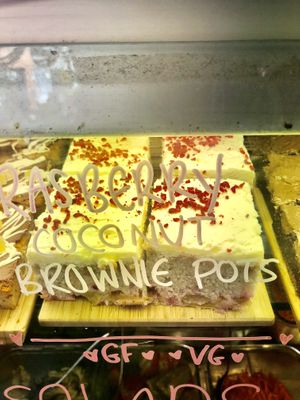 RASPBERRY
COCONUT
BROWNIE POTS
GF VG
SALADS